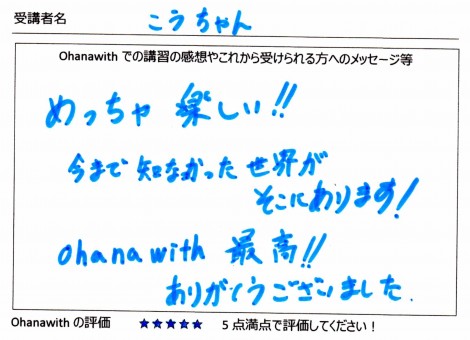 受講者名 こうちゃん
Ohanawith での講習の感想やこれから受けられる方へのメッセージ等
めっちゃ 楽しい!!
今まで 知なかった 世界が
そこにあります!
Ohanawith 最高!!
ありがとうございました.
Ohanawith の評価 ★★★★★ 5 点満点で評価してください!